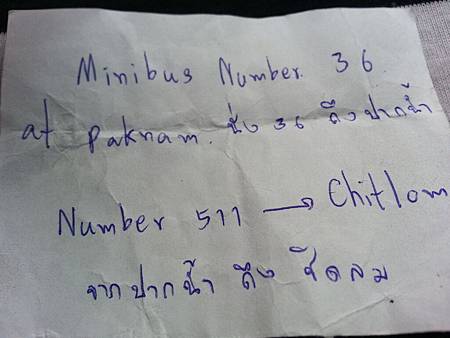 Minibus Number 36
at paknam. นั่ง 36 ถึงปากน้ำ
Number 511 → Chitlom
จากปากน้ำ ถึง ชิดลม